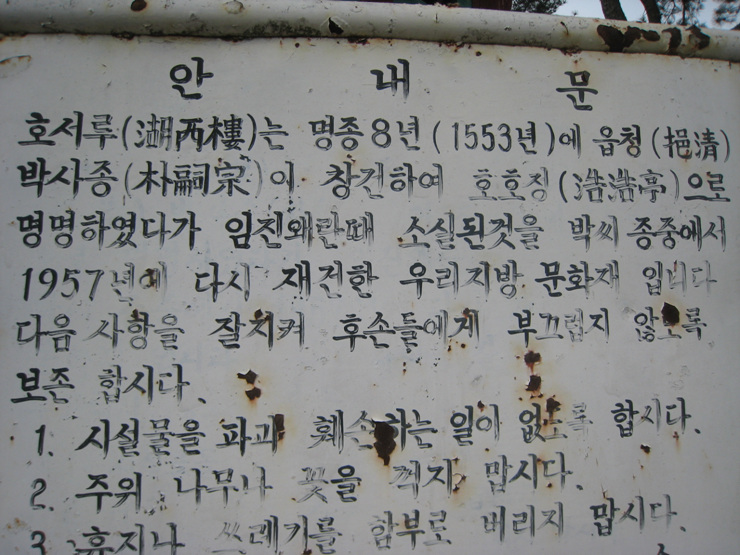 안 내 문
호서루(湖西樓)는 명종8년(1553년)에 읍청(挹淸)
박사종(朴嗣宗)이 창건하여 호호정(浩浩亭)으로
명명하였다가 임진왜란때 소실된것을 박씨 종중에서
1957년에 다시 재건한 우리지방 문화재 입니다
다음 사항을 잘지켜 후손들에게 부끄럽지 않도록
보존 합시다.
1. 시설물을 파괴 훼손하는 일이 없도록 합시다.
2. 주위 나무나 꽃을 꺽지 맙시다.
3. 휴지나 쓰레기를 함부로 버리지 맙시다.